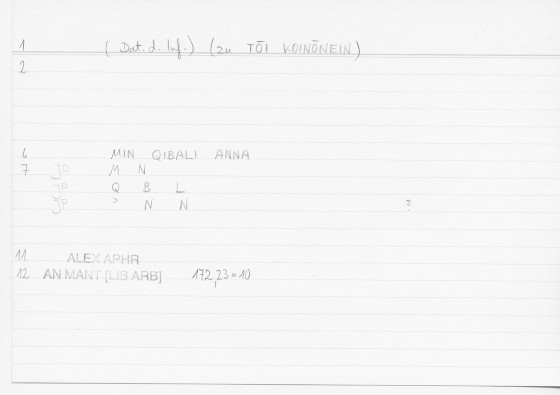 1 (Dat. d. Inf.) (zu TŌI KOINŌNEIN)
2
6 MIN QIBALI ANNA
7 JP M N
JP Q B L
JP ʾ N N ?
11 ALEX APHR
12 AN MANT [LIB ARB] 172,23*10